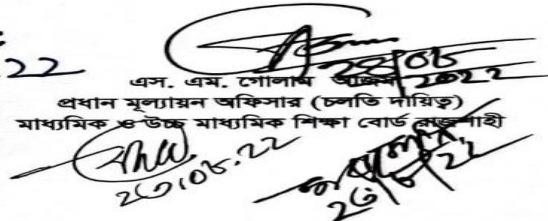 ২২
২৪/০৮/২০২২
এস. এম. গোলাম আজম
প্রধান মূল্যায়ন অফিসার (চলতি দায়িত্ব)
মাধ্যমিক ও উচ্চ মাধ্যমিক শিক্ষা বোর্ড রাজশাহী
২৩.০৮.২২
২৩/৮/২২